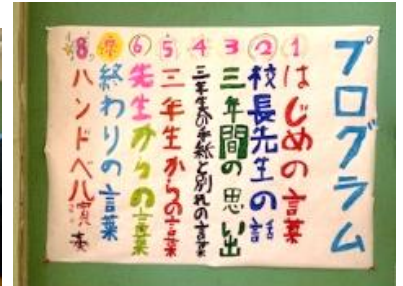 プログラム
1 はじめの言葉
2 校長先生の話
3 三年間の思い出
4 三年生の手紙と別れの言葉
5 三年生からの言葉
6 先生からの言葉
7 終わりの言葉
8 ハンドベル演奏